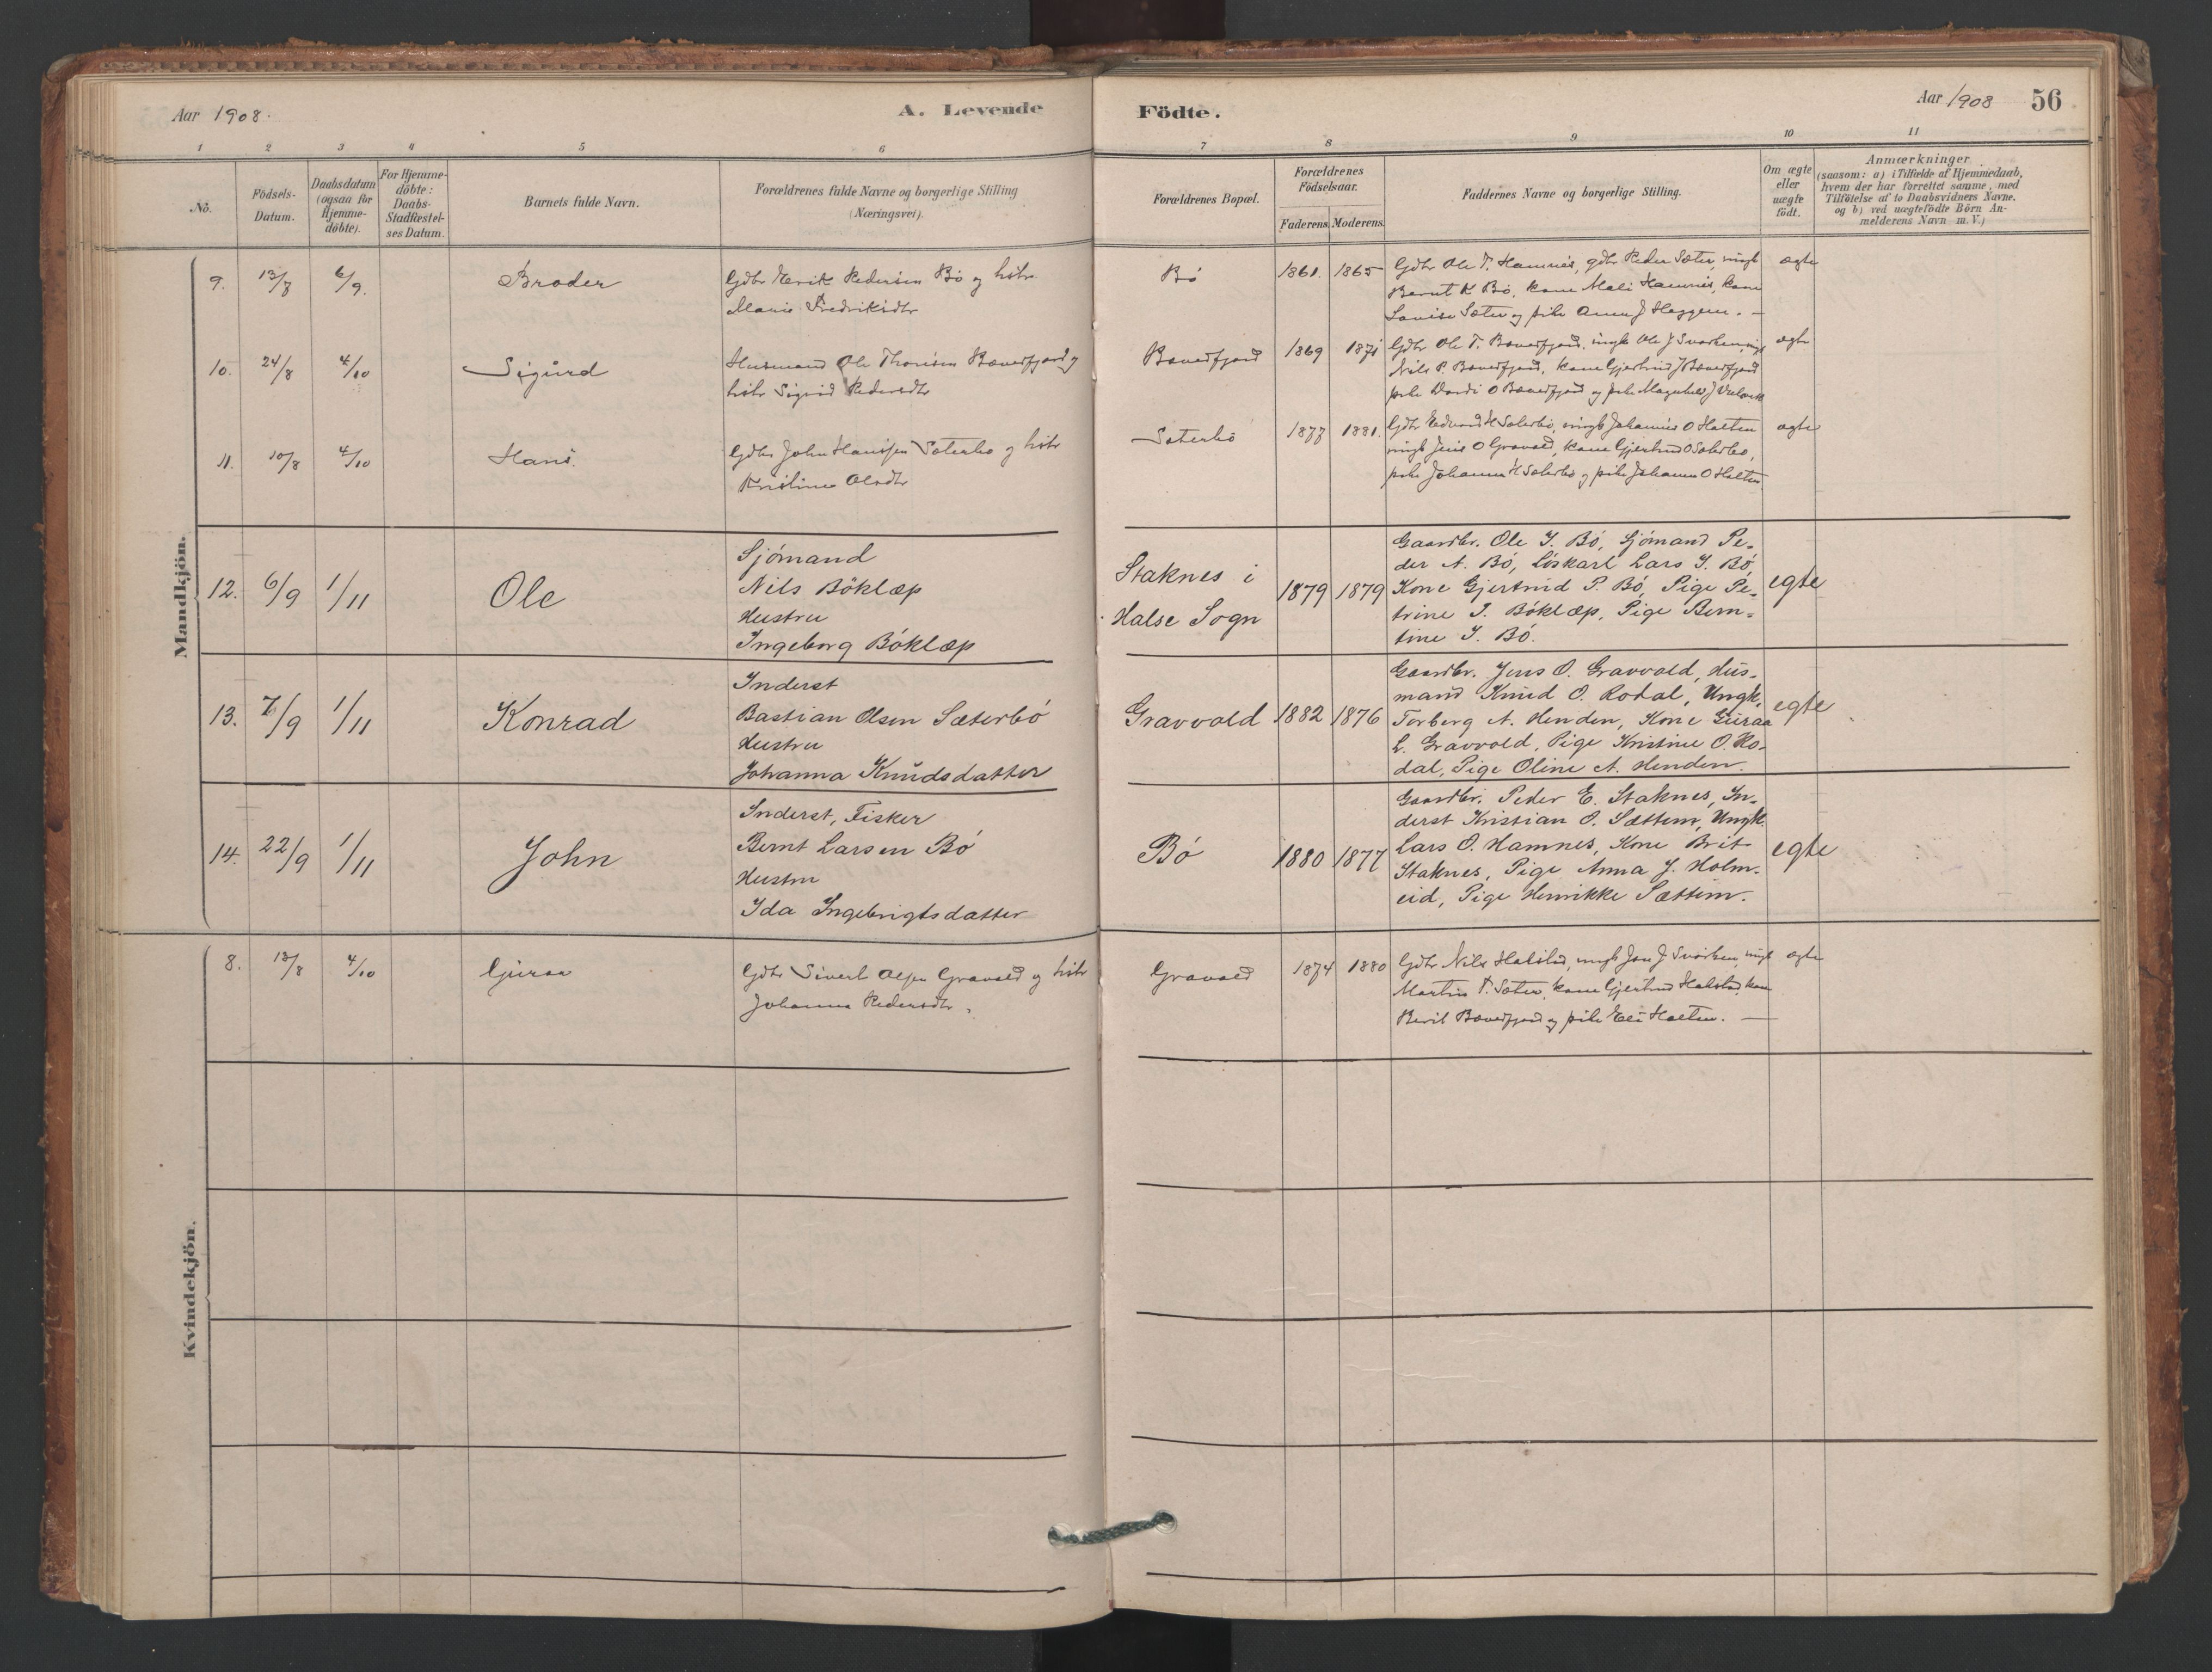 Aar 1908.
A. Levende
Födte.
Aar 1908
56
1 2 3 4 5 6 7 8 9 10 11
No.
Födsels-
Datum.
Daabsdatum
(ogsaa for
Hjemme-
döbte).
For Hjemme-
döbte:
Daabs-
Stadfæstel-
ses Datum.
Barnets fulde Navn.
Forældrenes fulde Navne og borgerlige Stilling
(Næringsvei).
Forældrenes Bopæl.
Forældrenes
Födselsaar.
Faderens. Moderens.
Faddernes Navne og borgerlige Stilling.
Om ægte
eller
uægte
födt.
Anmærkninger
(saasom: a) i Tilfælde af Hjemmedaab,
hvem der har forrettet samme, med
Tilföielse af to Daabsvidners Navne.
og b) ved uægtefödte Börn An-
melderens Navn m. V.)
Mandkjön.
9. 13/7 6/9. Broder
Gdbr Erik Pedersen Bö og hstr
Marie Fredriksdtr
Bö 1861. 1865
Gdbr Ole T. Hamnes, gdbr Peder Sæter, ungk
Bernt K Bö, kone Mali Hamnes, kone
Lovise Sæter og pike Anna J Heggem. —
ægte
10. 24/8 4/10 Sigurd
Husmand Ole Thoresen Bæverfjord og
hstr Sigrid Pedersdtr
Bæverfjord 1869 1871
Gdbr Ole T. Bæverfjord, ungk Ole J Svorken, ungk
Nils P. Bæverfjord, kone Gjertrud J Bæverfjord
pike Dordi O Bæverfjord og pike Magnhild J
ægte
11. 10/8 4/10 Hans.
Gdbr John Hanssen Sæterbö og hstr
Kristine Olsdtr
Sæterbö 1877 1881.
Gdbr Edvard H Sæterbö, ungk Johannes O Halten
ungk Jens O Gravold, kone Gjertrud O Sæterbö,
pike Johanna H Sæterbö og pike Johanna O Halten
ægte
12. 6/9 1/11 Ole
Sjömand
Nils Böklæp
Hustru
Ingeborg Böklæp
Staknes i
Halse Sogn
1879 1879
Gaardbr. Ole I. Bö, Sjömand Pe-
der A. Bö, Löskarl Lars I. Bö,
Kone Gjertrud P. Bö, Pige Pe-
trine I. Böklæp, Pige Bern-
tine I. Bö.
egte
13. 7/9 1/11 Konrad
Inderst
Bastian Olsen Sæterbö
Hustru
Johanna Knudsdatter
Gravvold 1882 1876
Gaardbr. Jens O. Gravvold, Hus-
mand Knud O. Rodal, Ungk.
Torberg A. Henden, Kone Guraa
L. Gravvold, Pige Kristine O. Ro-
dal, Pige Oline A. Henden.
egte
14. 22/9 1/11 John
Inderst, Fisker
Bernt Larsen Bö
Hustru
Ida Ingebrigtsdatter
Bö 1880 1877
Gaardbr. Peder E. Staknes, In-
derst Kristian O. Sættem, Ungk.
Lars O. Hamnes, Kone Brit
Staknes, Pige Anna J. Holm-
eid, Pige Henrikke Sættem.
egte
Kvindekjön.
8. 13/8 4/10 Guraa
Gdbr Sivert Olsen Gravold og hstr
Johanna Pedersdtr.
Gravold 1874 1880
Gdbr Nils Halstad, ungk Jon J Svorken, ungk
Martin T. Sæter, kone Gjertrud Halstad, kone
Berit Bæverfjord og pike Eli Halten. —
ægte